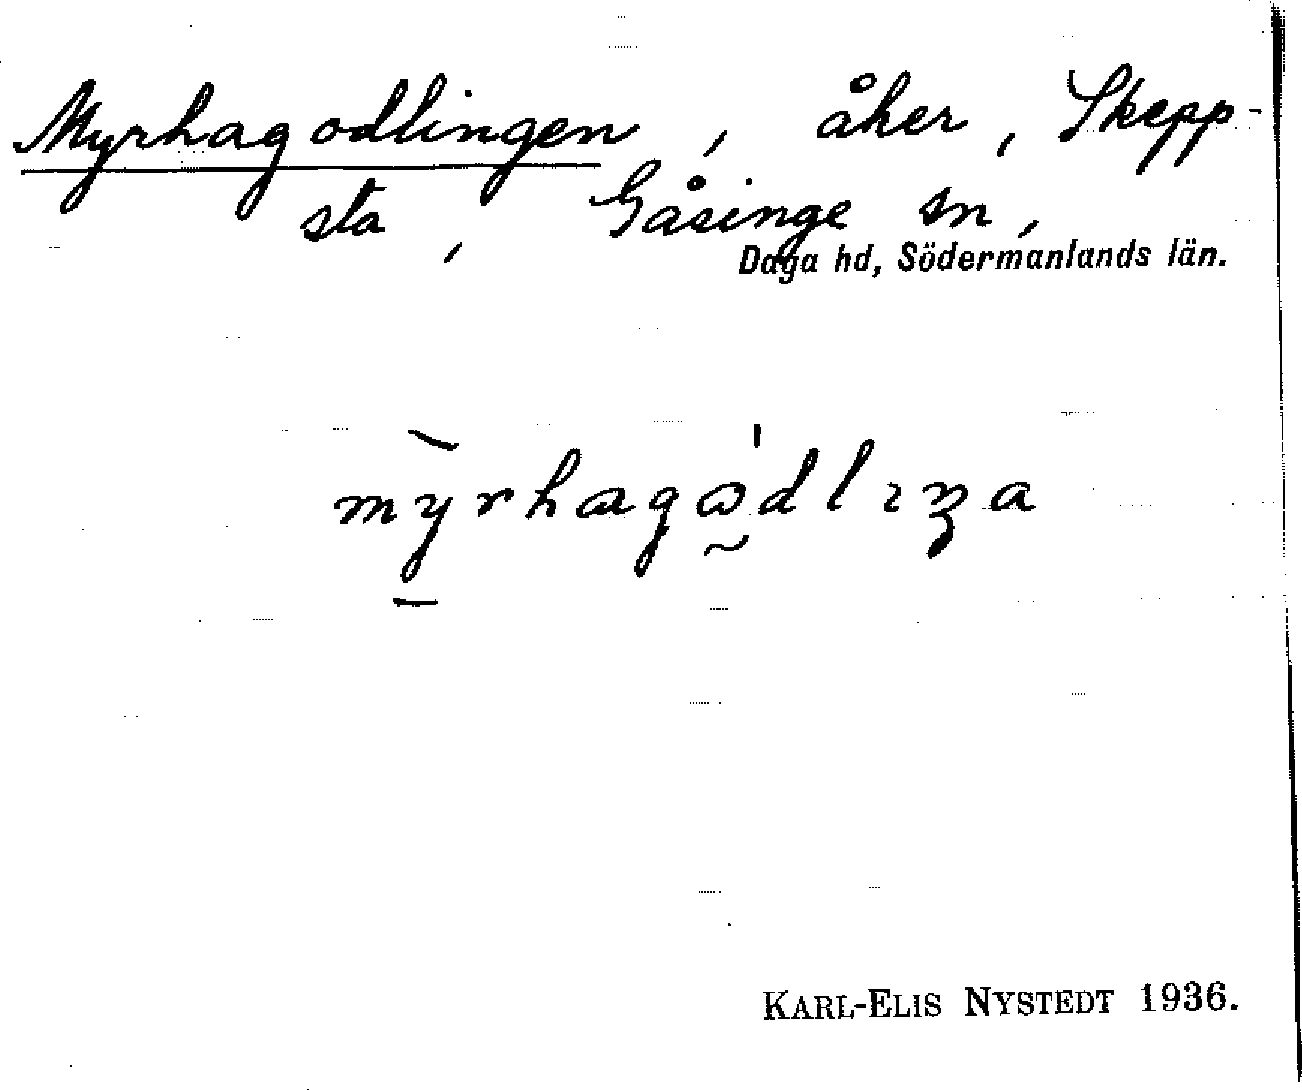 Myrhagodlingen, åker, Skepp-
sta, Gåsinge sn,
Daga hd, Södermanlands län.
KARL-ELIS NYSTEDT 1936.